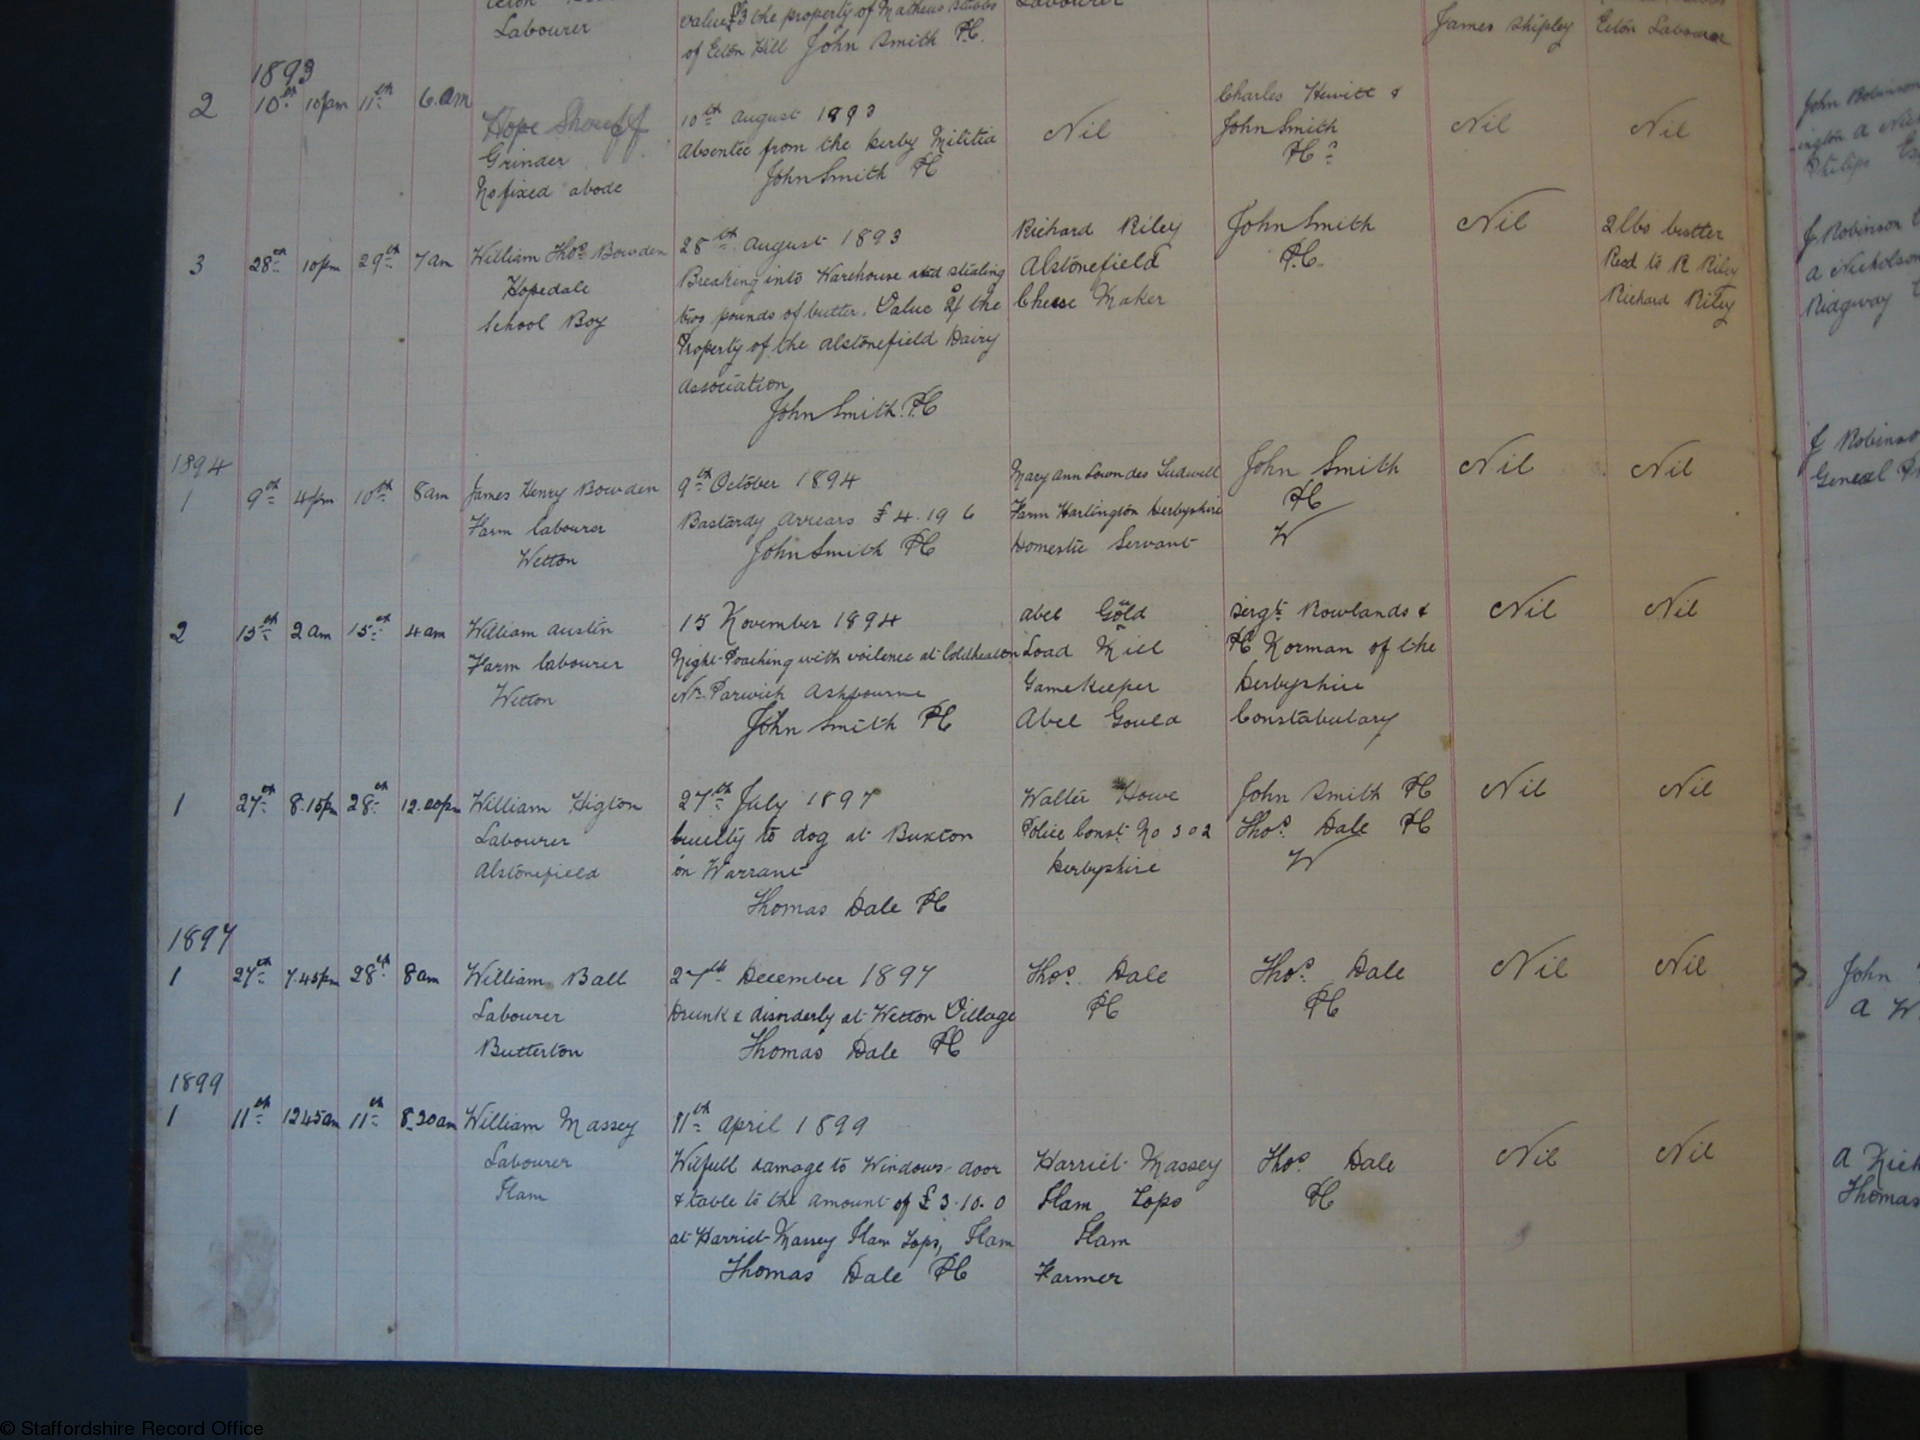 Labourer
value £3 the property of Mathew Stubbs
of Ecton Hill John Smith PC.
Labourer
James Shipley
Ecton Labourer
1893
2 10th 10pm 11th 6.am
Hope Sherriff
Grinder
No fixed abode
10th August 1893
Absentee from the Derby Militia
John Smith PC
Nil
Charles Hewitt &
John Smith
PCs
Nil
Nil
3 28th 10pm 29th 7am
William Thos Bowden
Hopedale
School Boy
28th August 1893
Breaking into Warehouse and stealing
two pounds of butter. Value 2/ the
Property of the Alstonefield Dairy
Association
John Smith. PC
Richard Riley
Alstonefield
Cheese Maker
John Smith
P.C.
Nil
2lbs butter
Red to R Riley
Richard Riley
1894
1 9th 4pm 10th 8am
James Henry Bowden
Farm labourer
Wetton
9th October 1894
Bastardy Arrears £4.19 6
John Smith PC
Mary Ann Lowndes Ludwell
Farm Hartington Derbyshire
Domestic Servant
John Smith
PC
W
Nil
Nil
2 15th 2am 15th 4am
William Austin
Farm labourer
Wetton
15 November 1894
Night-Poaching with voilence at Coldheaton
Nr. Parwich Ashbourne
John Smith PC
Abel Gold
Load Mill
Gamekeeper
Abel Gould
Sergt Rowlands &
PC Norman of the
Derbyshire
Constabulary
Nil
Nil
1 27th 8.15pm 28th 12.00pm
William Higton
Labourer
Alstonefield
27th July 1897
Cruelty to dog at Buxton
on Warrant
Thomas Dale PC
Walter Howe
Police Const No 302
Derbyshire
John Smith PC
Thos. Dale PC
W
Nil
Nil
1897
1 27th 7.45pm 28th 8am
William Ball
Labourer
Butterton
27th December 1897
Drunk & disorderly at Wetton Village
Thomas Dale PC
Thos. Dale
PC
Thos. Dale
PC
Nil
Nil
1899
1 11th 12.45am 11th 8.30am
William Massey
Labourer
Ilam
11th April 1899
Wilfull damage to Windows-door
& table to the amount of £3.10.0
at Harriet Massey Ilam Tops, Ilam
Thomas Dale PC
Harriet Massey
Ilam Tops
Ilam
Farmer
Thos. Dale
PC
Nil
Nil
John Robinson
J Robinson
A Nicholson
Ridgway
J Robinson
General
John
A W
Thomas
© Staffordshire Record Office